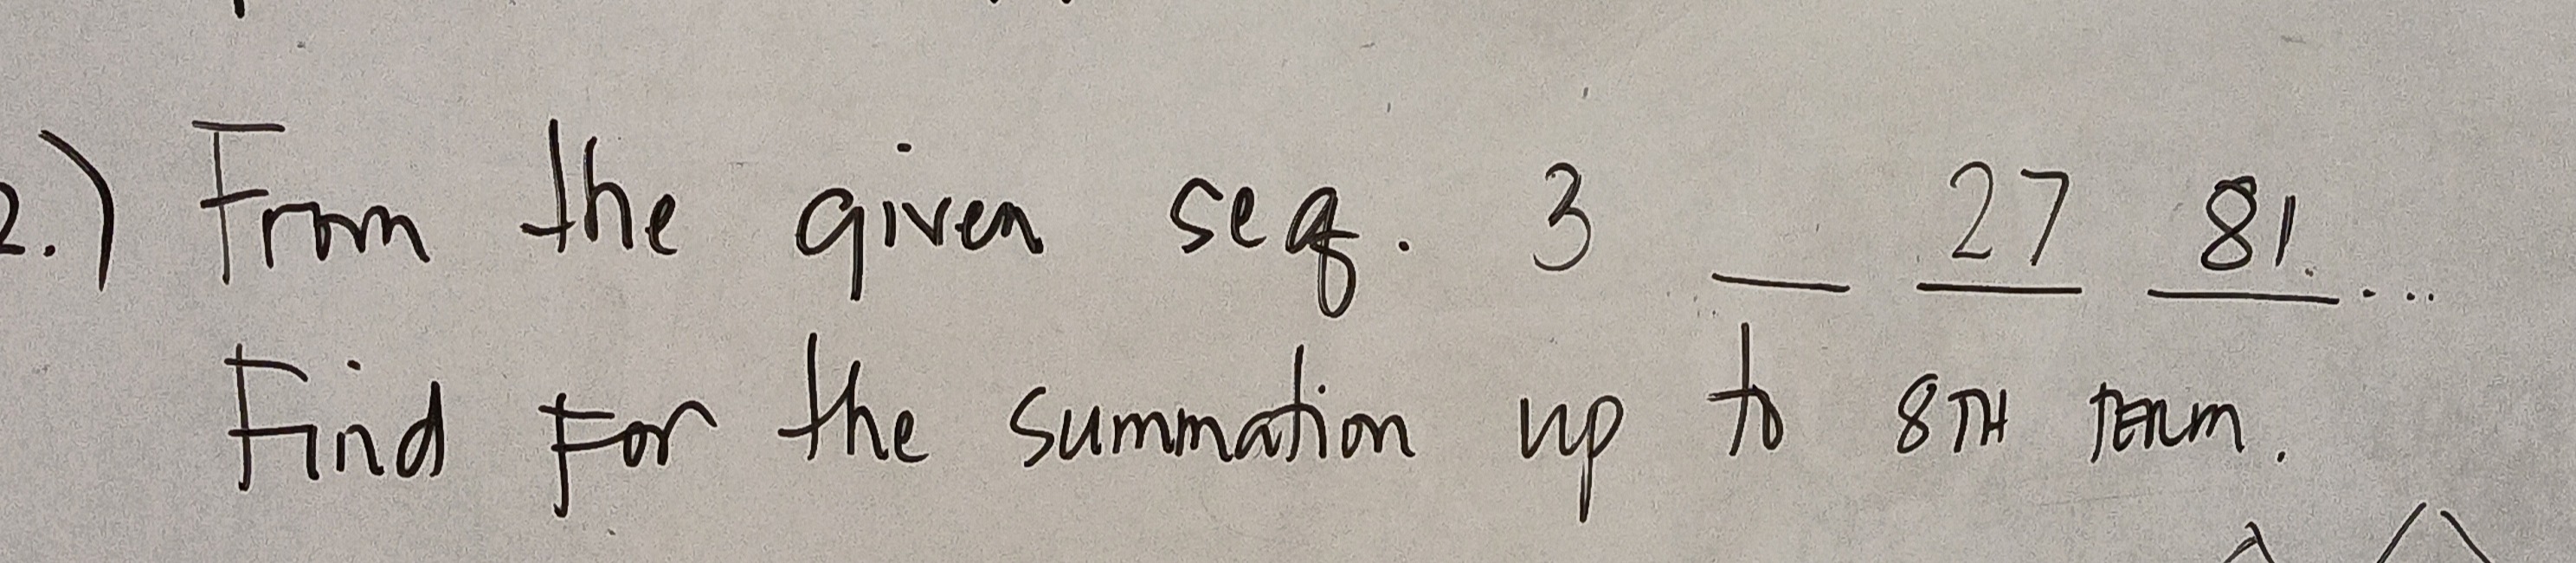 2.) From the given seq. 3 __ 27 81...
Find For the summation up to 8TH TERM.